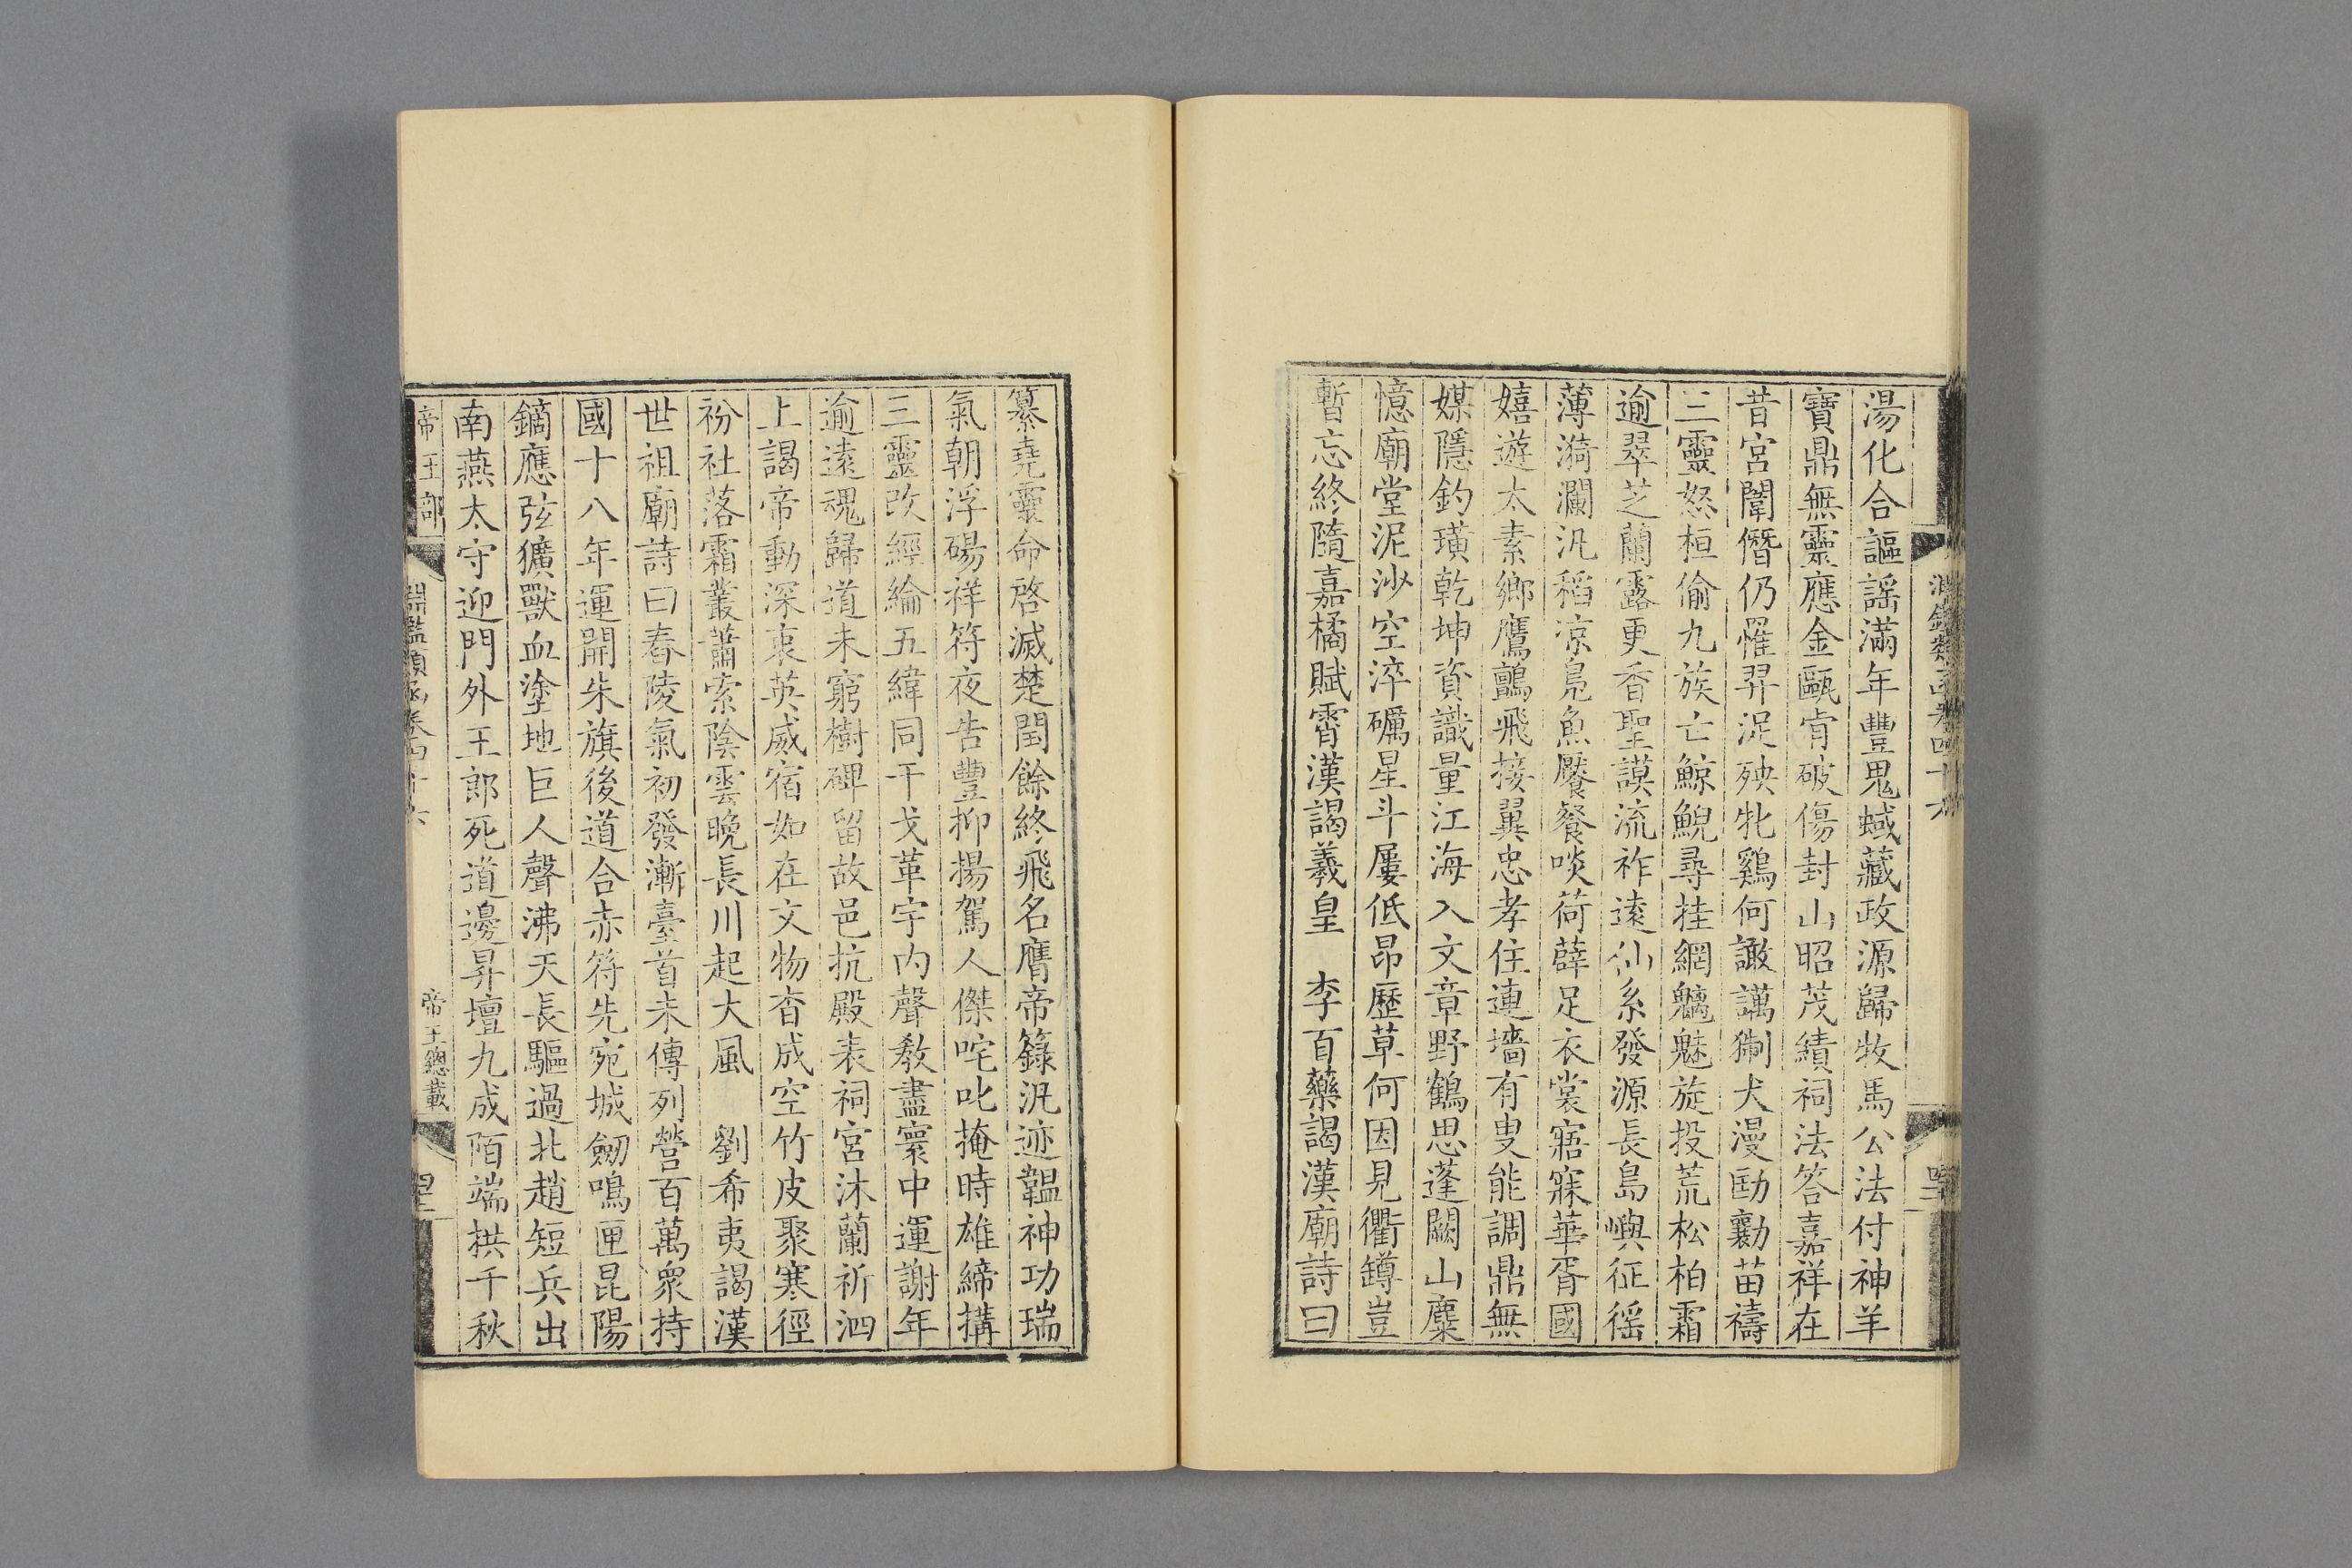 湯化合謳謡滿年豐鬼蜮藏政源歸牧馬公法付神羊
寶鼎無靈應金甌肯破傷封山昭茂績祠法答嘉祥在
昔宮闈僭仍罹羿浞殃牝鷄何譀讆猘犬漫劻勷苗禱
三靈怒桓偷九族亡鯨鯢尋挂網魑魅旋投荒松柏霜
逾翠芝蘭露更香聖謨流祚遠仙系發源長島嶼征徭
薄漪瀾汎稻涼鳧魚饜餐啖荷薜足衣裳寤寐華胥國
嬉遊太素鄉鷹鸇飛接翼忠孝住連墻有叟能調鼎無
媒隱釣璜乾坤資識量江海入文章野鶴思蓬闕山麋
憶廟堂泥沙空淬礪星斗屢低昂歷草何因見衢罇豈
暫忘終隨嘉橘賦霄漢謁羲皇　李百藥謁漢廟詩曰
纂堯靈命啓滅楚閏餘終飛名膺帝籙汎迹韞神功瑞
氣朝浮碭祥符夜告豐抑揚駕人傑咤叱掩時雄締搆
三靈改經綸五緯同干戈革宇内聲教盡寰中運謝年
逾遠魂歸道未窮樹碑留故邑抗殿表祠宮沐蘭祈泗
上謁帝動深衷英威宿如在文物杳成空竹皮聚寒徑
枌社落霜叢蕭索陰雲晚長川起大風　劉希夷謁漢
世祖廟詩曰舂陵氣初發漸臺首未傳列營百萬衆持
國十八年運開朱旗後道合赤符先宛城劒鳴匣昆陽
鏑應弦獷獸血塗地巨人聲沸天長驅過北趙短兵出
南燕太守迎門外王郎死道邊昇壇九成陌端拱千秋
帝王部
淵鑑類函卷四十六
帝王總載